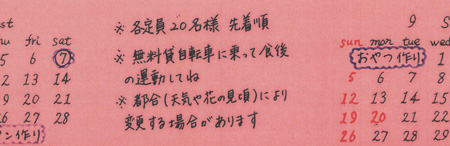 st
hu fri sat
5 6 7
2 13 14
9 20 21
6 27 28
パン作り
※ 各定員20名様 先着順
※ 無料貸自転車に乗って食後
の運動してね
※ 都合(天気や花の見頃)により
変更する場合があります
9 S
sun mon tue wed
おやつ作り 1
5 6 7 8
12 13 14 15
19 20 21 22
26 27 28 29